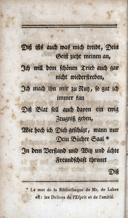 Diß ists auch was mich treibt, Dein
Geist ziehe meinen an,
Ich will dem schönen Trieb auch gar
nicht widerstreben,
Ich mach ihn mir zu Nutz, so gut ich
immer kan
Diß Blat soll auch davon ein ewig
Zeugniß geben,
Wie hoch ich Dich geschätzt, wann nur
Dein Bücher Saal *
In dem Verstand und Witz und ächte
Freundschafft thronet
Diß
* Le mot de la Bibliotheque de Mr. de Labes
est: les Delices de l'Esprit et de l'amitié.